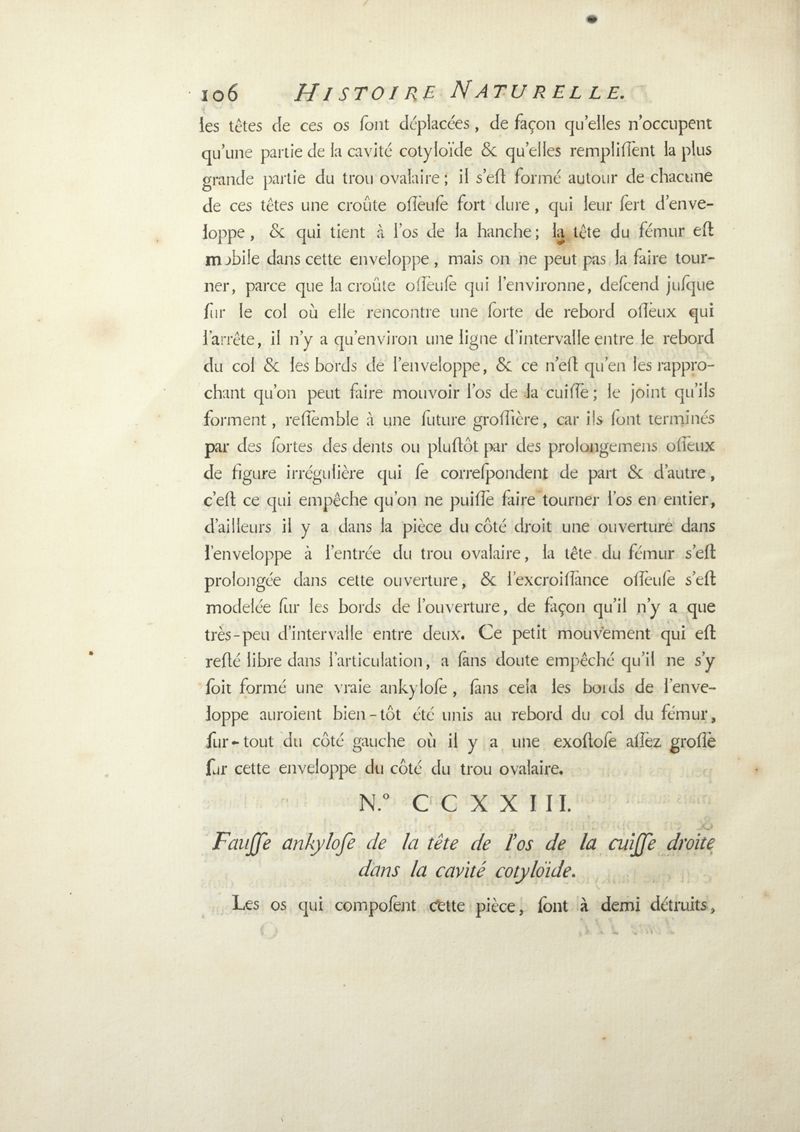 106 HISTOIRE NATURELLE.
les têtes de ces os ſont déplacées, de façon qu'elles n'occupent
qu'une partie de la cavité cotyloïde & qu'elles rempliſſent la plus
grande partie du trou ovalaire; il s'eſt formé autour de chacune
de ces têtes une croûte oſſeuſe fort dure, qui leur ſert d'enve-
loppe, & qui tient à l'os de la hanche; la tête du fémur eſt
mobile dans cette enveloppe, mais on ne peut pas la faire tour-
ner, parce que la croûte oſſeuſe qui l'environne, deſcend juſque
ſur le col où elle rencontre une ſorte de rebord oſſeux qui
l'arrête, il n'y a qu'environ une ligne d'intervalle entre le rebord
du col & les bords de l'enveloppe, & ce n'eſt qu'en les rappro-
chant qu'on peut faire mouvoir l'os de la cuiſſe; le joint qu'ils
forment, reſſemble à une ſuture groſſière, car ils ſont terminés
par des ſortes des dents ou pluſtôt par des prolongemens oſſeux
de figure irrégulière qui ſe correſpondent de part & d'autre,
c'eſt ce qui empêche qu'on ne puiſſe faire tourner l'os en entier,
d'ailleurs il y a dans la pièce du côté droit une ouverture dans
l'enveloppe à l'entrée du trou ovalaire, la tête du fémur s'eſt
prolongée dans cette ouverture, & l'excroiſſance oſſeuſe s'eſt
modelée ſur les bords de l'ouverture, de façon qu'il n'y a que
très-peu d'intervalle entre deux. Ce petit mouvement qui eſt
reſté libre dans l'articulation, a ſans doute empêché qu'il ne s'y
ſoit formé une vraie ankyloſe, ſans cela les bords de l'enve-
loppe auroient bien-tôt été unis au rebord du col du fémur,
ſur-tout du côté gauche où il y a une exoſtoſe aſſez groſſe
ſur cette enveloppe du côté du trou ovalaire.
N.° CCXXIII.
Fauſſe ankyloſe de la tête de l'os de la cuiſſe droite
dans la cavité cotyloïde.
Les os qui compoſent cette pièce, ſont à demi détruits,